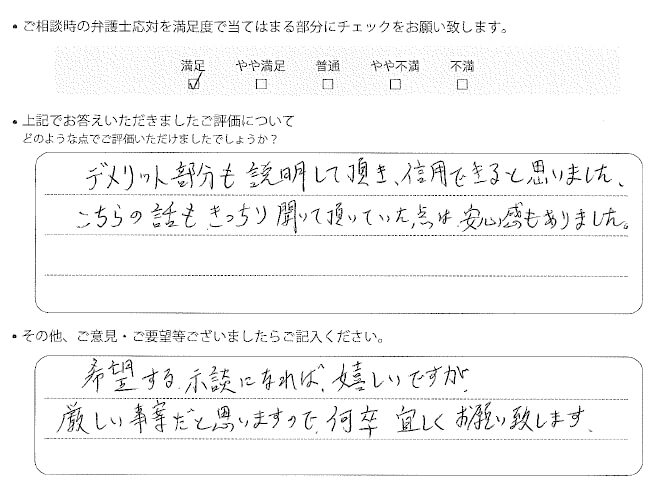 • ご相談時の弁護士応対を満足度で当てはまる部分にチェックをお願い致します。
満足 やや満足 普通 やや不満 不満
☑ □ □ □ □
• 上記でお答えいただきましたご評価について
どのような点でご評価いただけましたでしょうか？
デメリット部分も説明して頂き、信用できると思いました、
こちらの話もきっちり聞いて頂いていた点は、安心感もありました。
• その他、ご意見・ご要望等ございましたらご記入ください。
希望する示談になれば、嬉しいですが、
厳しい事案だと思いますので、何卒宜しくお願い致します、